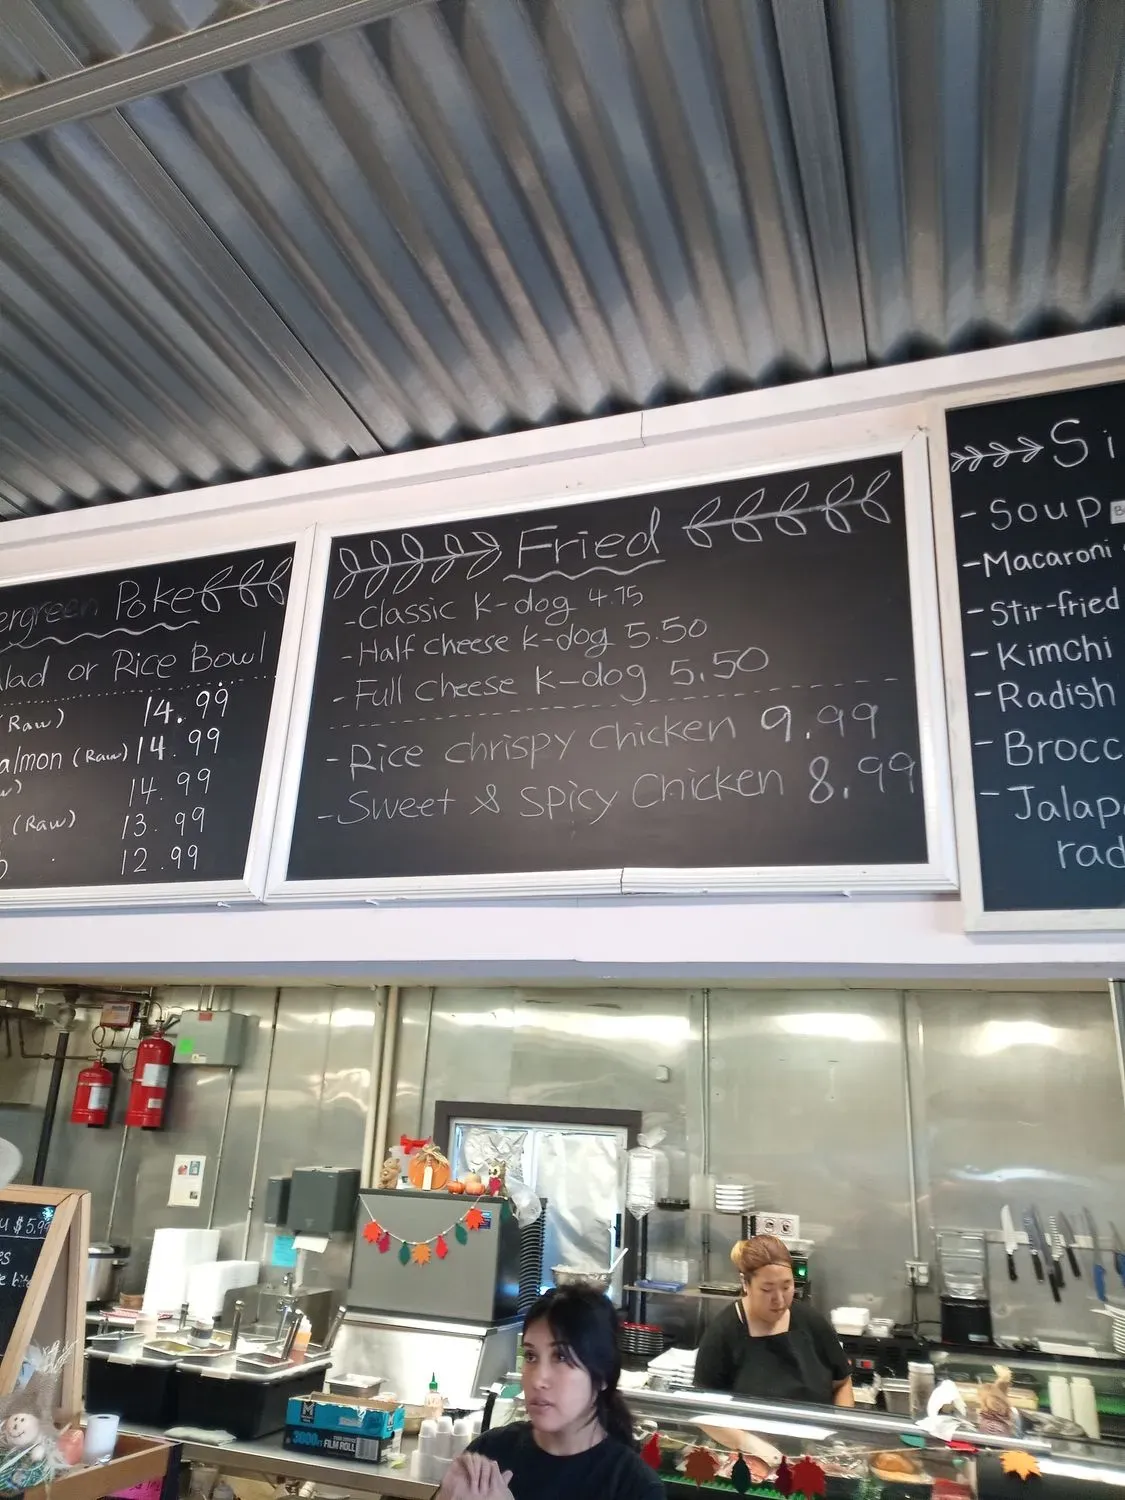 Poke
or Rice Bowl
(Raw) 14.99
(Raw) 14.99
14.99
(Raw) 13.99
12.99
Fried
-Classic K-dog 4.75
-Half cheese k-dog 5.50
-Full cheese k-dog 5.50
-Rice chrispy chicken 9.99
-Sweet & Spicy Chicken 8.99
Si
-Soup
-Macaroni
-Stir-fried
-Kimchi
-Radish
-Brocc
-Jalap
rad
$5.9
3000FT FILM ROLL